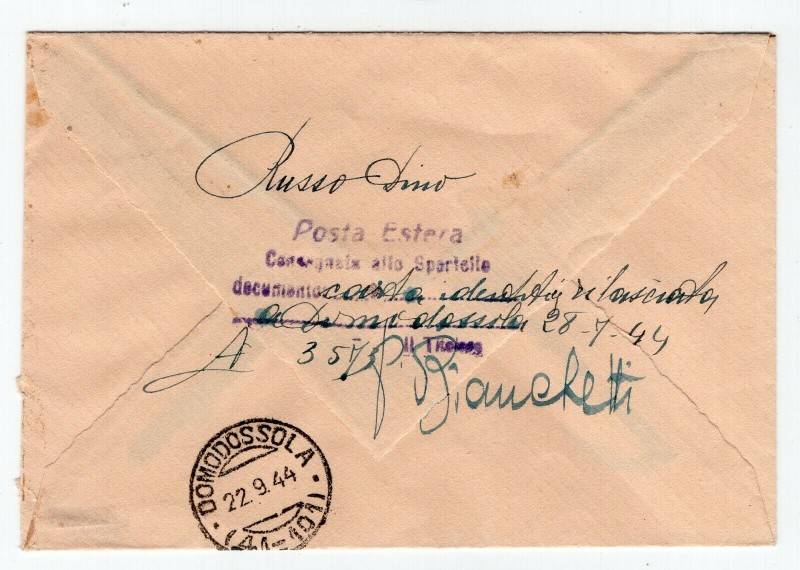 Russo Dino
Posta Estera
Consegnata allo Sportello
documento carta identità rilasciata
a Domodossola 28-7-44
A 3575 Il Titolare
Bianchetti
DOMODOSSOLA
22.9.44
(41-101)